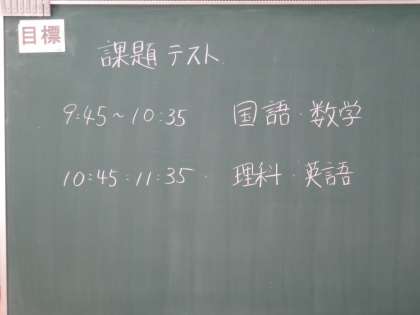 目標
課題テスト
9:45~10:35 国語・数学
10:45:11:35. 理科・英語